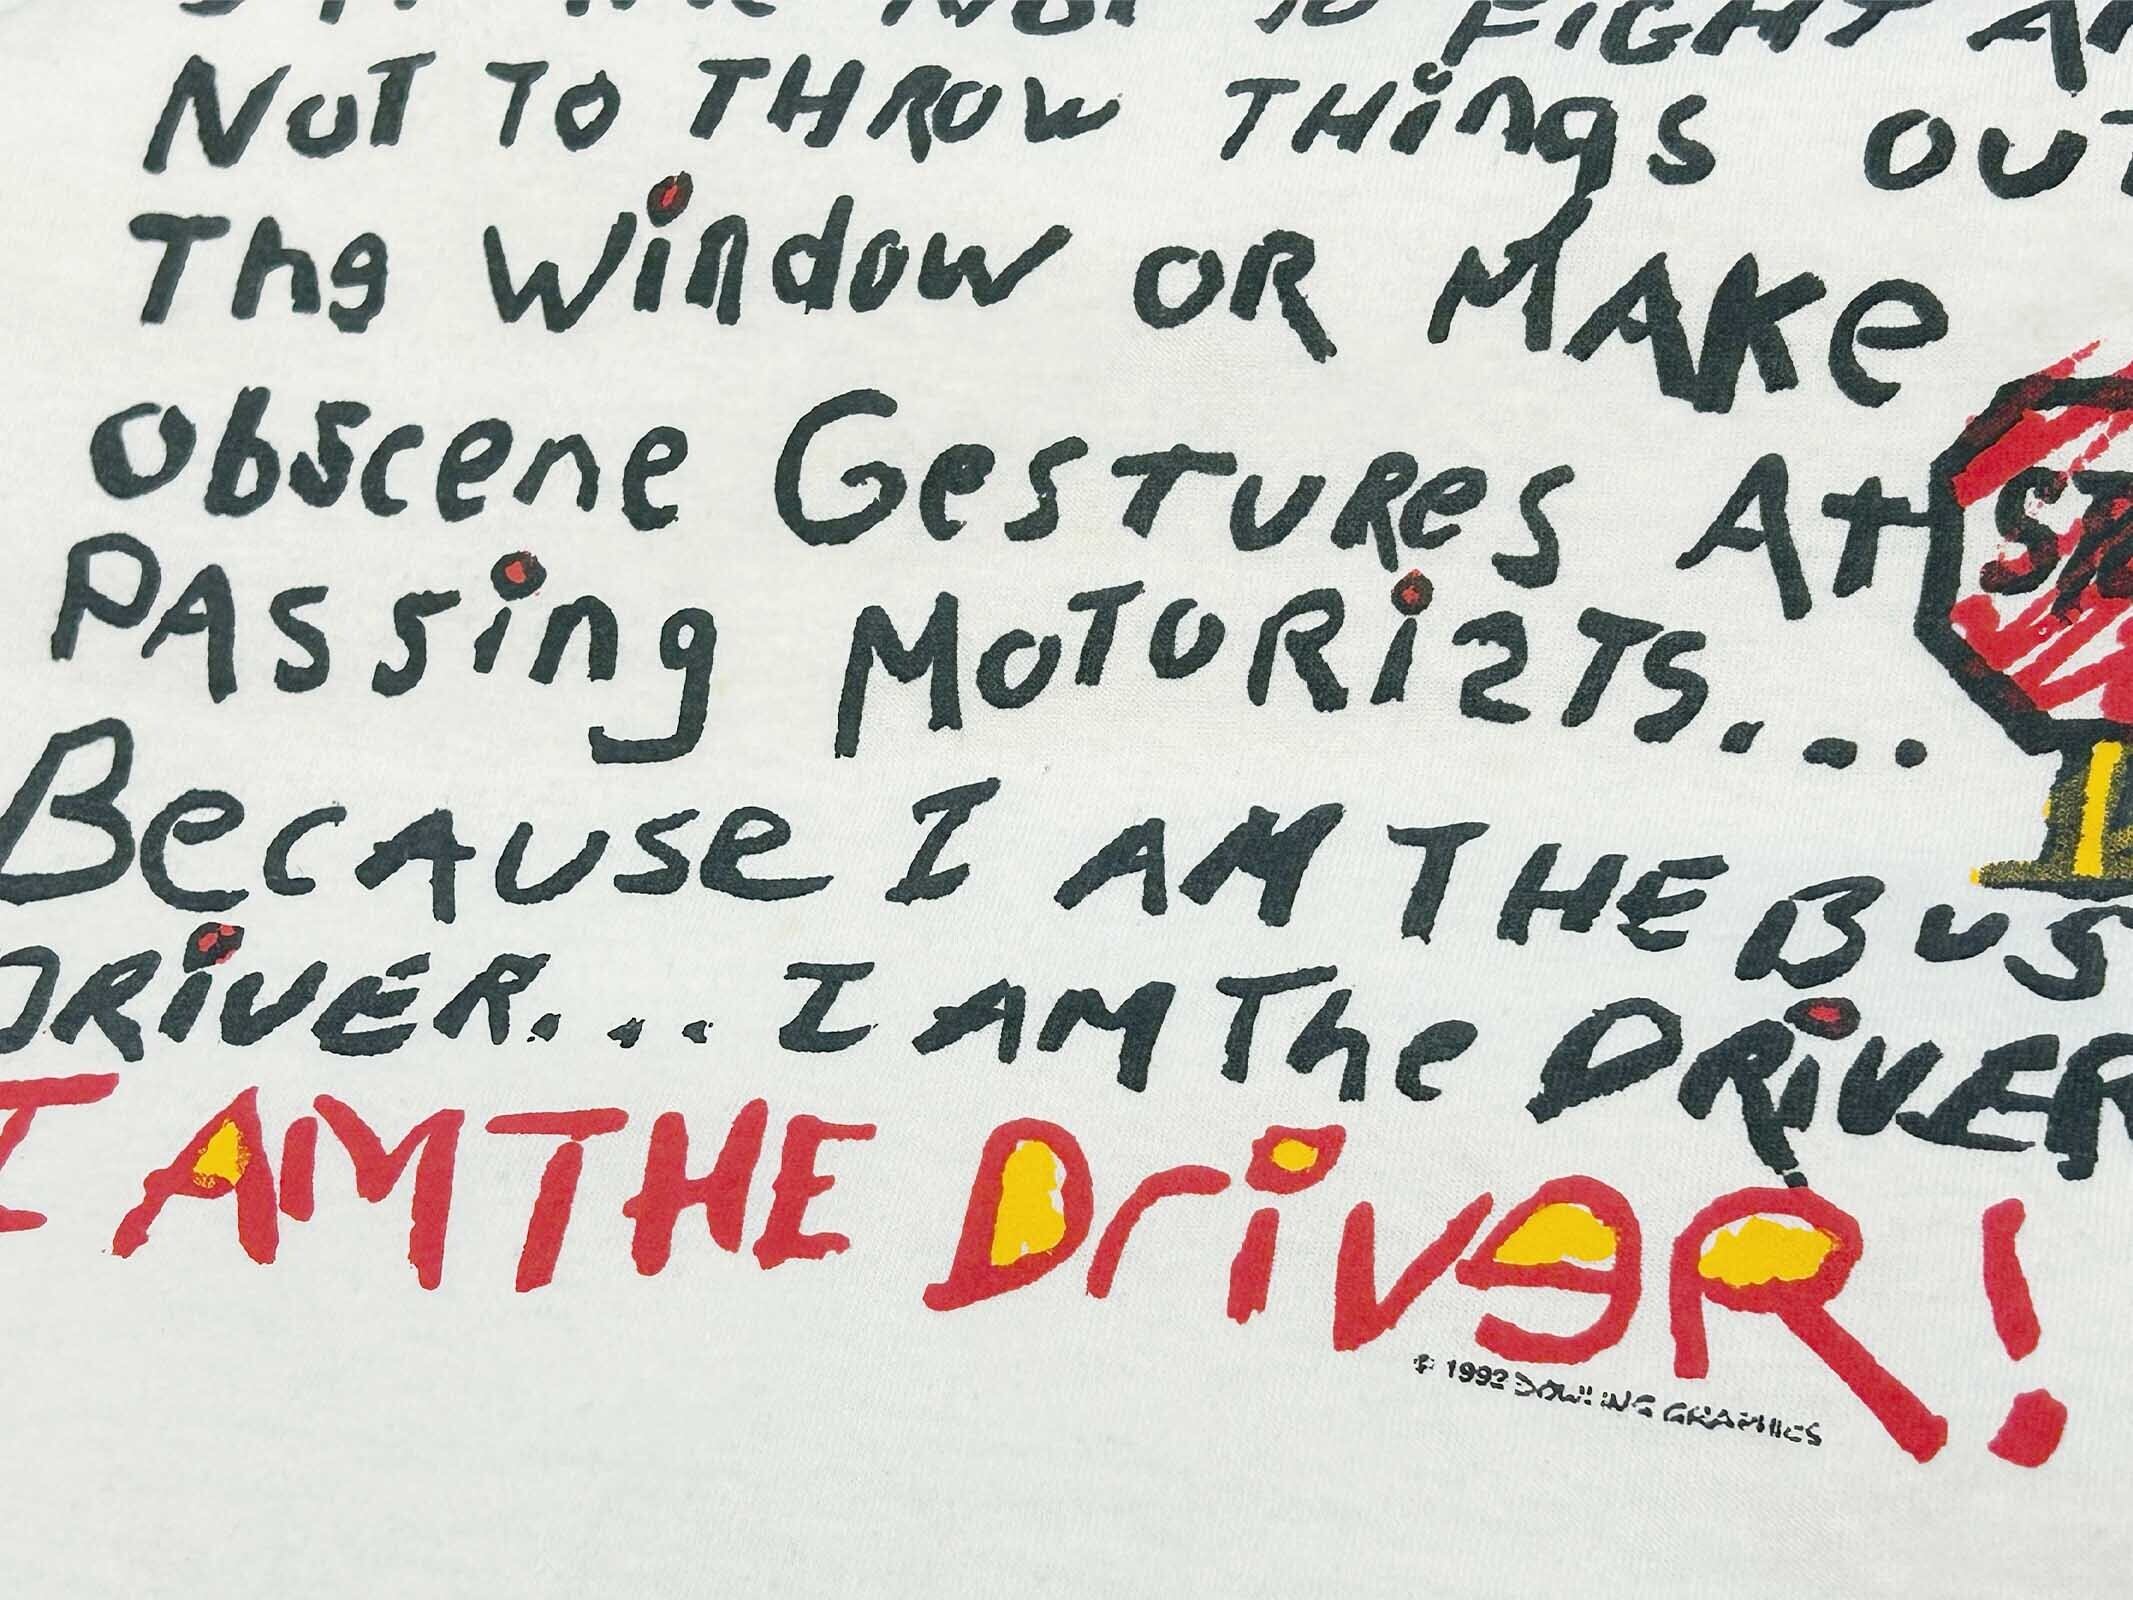 NOT TO FIGHT
NOT TO THROW THINgS OUT
The WindoW OR MAKe
ObsceNe GesTURes At STO
PAssing MoToRisTs...
BecAUse I AM THE BUS
DRiVER... I AM The DRiVER
I AM THE DriveR!
© 1992 DOWLING GRAPHICS